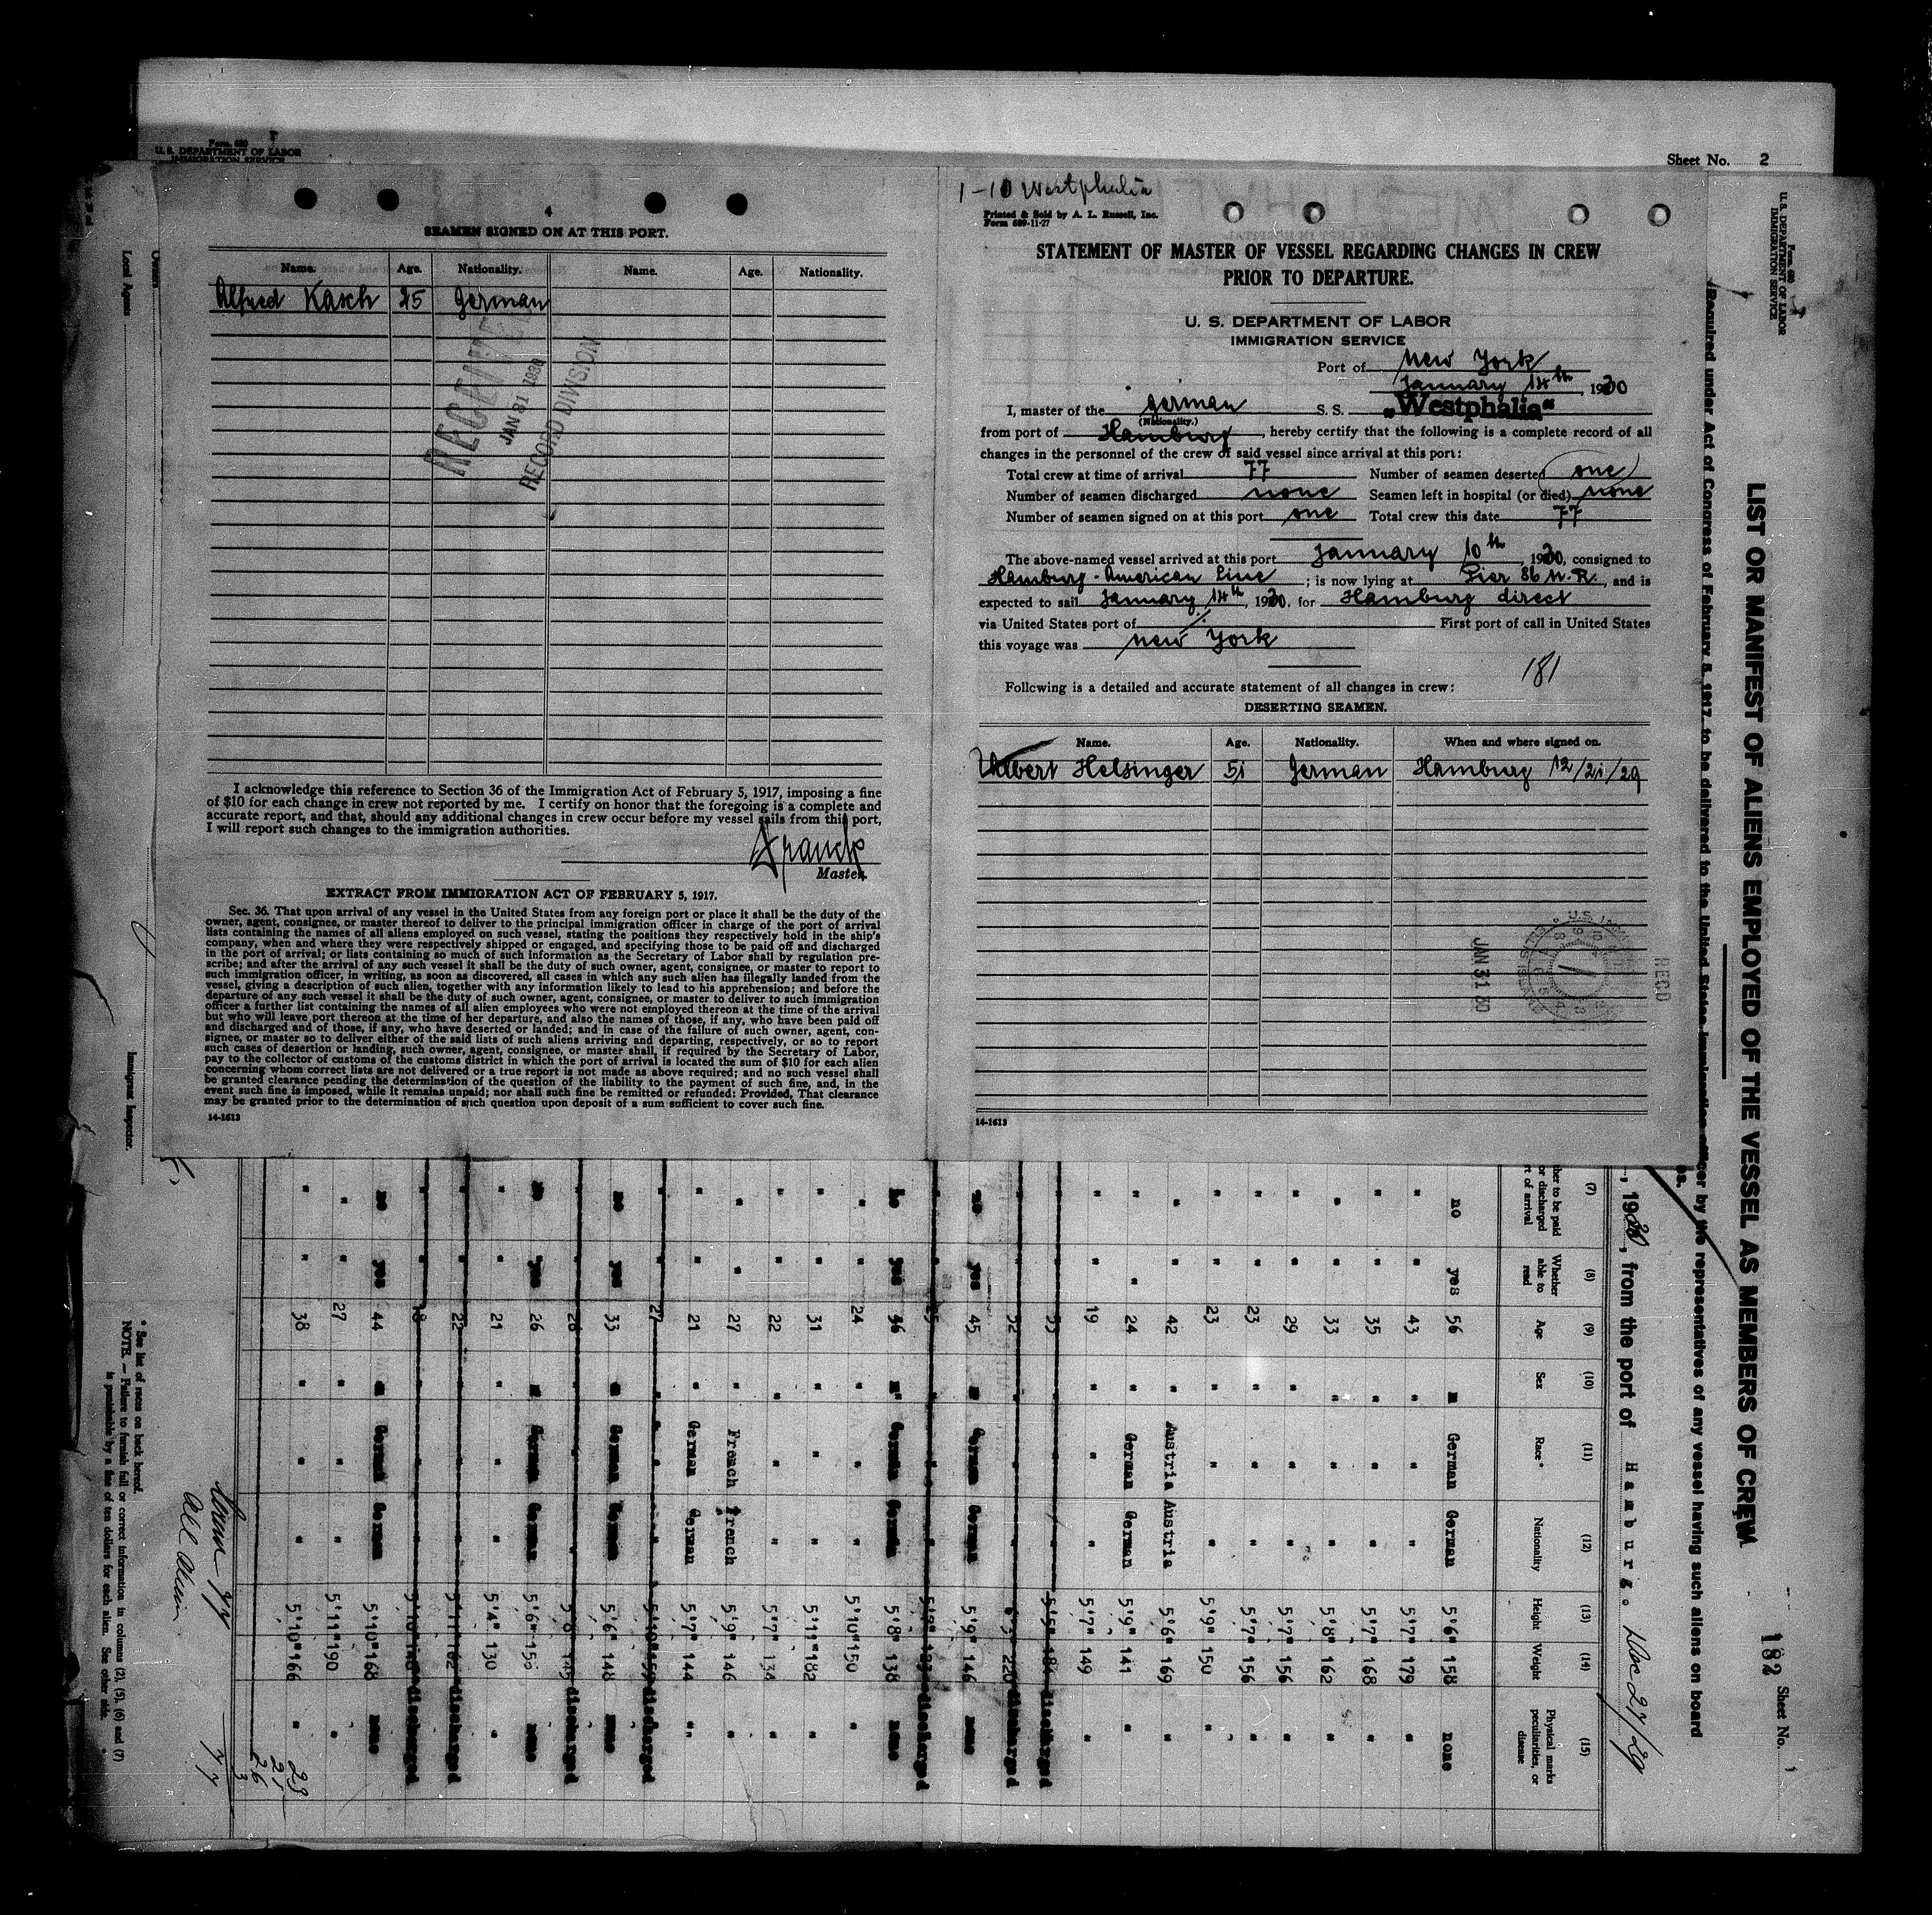 Form 680
U. S. DEPARTMENT OF LABOR
IMMIGRATION SERVICE
Sheet No. 2
4
SEAMEN SIGNED ON AT THIS PORT.
Name. Age. Nationality. Name. Age. Nationality.
Alfred Kasch 25 German
RECEIVED
JAN 31 1930
RECORD DIVISION
I acknowledge this reference to Section 36 of the Immigration Act of February 5, 1917, imposing a fine
of $10 for each change in crew not reported by me. I certify on honor that the foregoing is a complete and
accurate report, and that, should any additional changes in crew occur before my vessel sails from this port,
I will report such changes to the immigration authorities.
Master.
EXTRACT FROM IMMIGRATION ACT OF FEBRUARY 5, 1917.
Sec. 36. That upon arrival of any vessel in the United States from any foreign port or place it shall be the duty of the
owner, agent, consignee, or master thereof to deliver to the principal immigration officer in charge of the port of arrival
lists containing the names of all aliens employed on such vessel, stating the positions they respectively hold in the ship's
company, when and where they were respectively shipped or engaged, and specifying those to be paid off and discharged
in the port of arrival; or lists containing so much of such information as the Secretary of Labor shall by regulation pre-
scribe; and after the arrival of any such vessel it shall be the duty of such owner, agent, consignee, or master to report to
such immigration officer, in writing, as soon as discovered, all cases in which any such alien has illegally landed from the
vessel, giving a description of such alien, together with any information likely to lead to his apprehension; and before the
departure of any such vessel it shall be the duty of such owner, agent, consignee, or master to deliver to such immigration
officer a further list containing the names of all alien employees who were not employed thereon at the time of the arrival
but who will leave port thereon at the time of her departure, and also the names of those, if any, who have been paid off
and discharged and of those, if any, who have deserted or landed; and in case of the failure of such owner, agent, con-
signee, or master so to deliver either of the said lists of such aliens arriving and departing, respectively, or so to report
such cases of desertion or landing, such owner, agent, consignee, or master shall, if required by the Secretary of Labor,
pay to the collector of customs of the customs district in which the port of arrival is located the sum of $10 for each alien
concerning whom correct lists are not delivered or a true report is not made as above required; and no such vessel shall
be granted clearance pending the determination of the question of the liability to the payment of such fine, and, in the
event such fine is imposed, while it remains unpaid; nor shall such fine be remitted or refunded: Provided, That clearance
may be granted prior to the determination of such question upon deposit of a sum sufficient to cover such fine.
14-1613
1-10 Westphalia
Printed & Sold by A. L. Russell, Inc.
Form 689-11-27
STATEMENT OF MASTER OF VESSEL REGARDING CHANGES IN CREW
PRIOR TO DEPARTURE.
U. S. DEPARTMENT OF LABOR
IMMIGRATION SERVICE
Port of New York
January 14th, 1930
I, master of the German S. S. "Westphalia"
(Nationality.)
from port of Hamburg, hereby certify that the following is a complete record of all
changes in the personnel of the crew of said vessel since arrival at this port:
Total crew at time of arrival 77 Number of seamen deserted one
Number of seamen discharged none Seamen left in hospital (or died) none
Number of seamen signed on at this port one Total crew this date 77
The above-named vessel arrived at this port January 10th, 1930, consigned to
Hamburg-American Line; is now lying at Pier 86 N.R., and is
expected to sail January 14th, 1930, for Hamburg direct
via United States port of First port of call in United States
this voyage was New York
181
Following is a detailed and accurate statement of all changes in crew:
DESERTING SEAMEN.
Name. Age. Nationality. When and where signed on.
Helsinger 51 German Hamburg 12/21/29
JAN 31 30
RECD
14-1613
Form 680
U. S. DEPARTMENT OF LABOR
IMMIGRATION SERVICE
182 Sheet No.
LIST OR MANIFEST OF ALIENS EMPLOYED OF THE VESSEL AS MEMBERS OF CREW
(Required under Act of Congress of February 5, 1917, to be delivered to the United States immigration officer by the representatives of any vessel having such aliens on board
, 1930, from the port of Hamburg. Dec 27/29
(7) (8) (9) (10) (11) (12) (13) (14) (15)
Whether able to read Age Sex Race* Nationality Height Weight Physical marks peculiarities, or disease
no yes 56 m German German 5'6" 158 none
" " 43 " " " 5'7" 179 "
" " 35 " " " 5'7" 168 "
" " 33 " " " 5'8" 162 "
" " 29 " " " 5'7" 156 "
" " 23 " " " 5'7" 156 "
" " 23 " " " 5'9" 150 "
" " 42 " Austria Austria 5'6" 169 "
" " 24 " German German 5'9" 141 "
" " 19 " " " 5'7" 149 "
" " 53 " " " 5'5" 184 discharged
52 220 discharged
no yes 45 m German German 5'9" 146 none
discharged
yes 46 m German German 5'8" 138 none
" " 24 " " " 5'10" 150 "
" " 31 " " " 5'11" 182 "
" " 22 " " " 5'7" 134 "
" " 27 " French French 5'9" 146 "
" " 21 " German German 5'7" 144 "
" " 27 " " " 5'10" 159 discharged
no yes 33 m German German 5'6" 148 none
" " 28 " " " 145 discharged
no yes 26 m German German 5'6" 150 none
" " 21 " " " 5'4" 130 "
" " 22 " " " 5'11" 162 discharged
" " 18 " " " 5'10" 148 discharged
no yes 44 m German German 5'10" 168 none
" " 27 " " " 5'11" 190 "
" " 38 " " " 5'10" 166 "
Owners
Local Agents
Immigrant Inspector.
* See list of races on back hereof.
NOTE.—Failure to furnish full or correct information in columns (2), (5), (6) and (7)
is punishable by a fine of ten dollars for each alien. See other side.
23
26
3
77